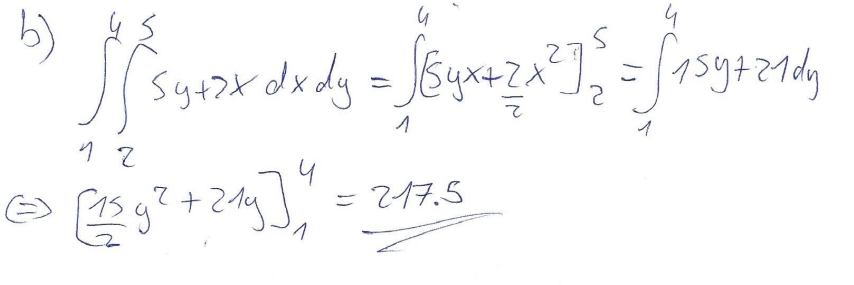 b) ∫₁⁴ ∫₂⁵ 5y+2x dx dy = ∫₁⁴ [5yx + 2/2 x²]₂⁵ = ∫₁⁴ 15y+21 dy
⇔ [15/2 y² + 21y]₁⁴ = 217.5